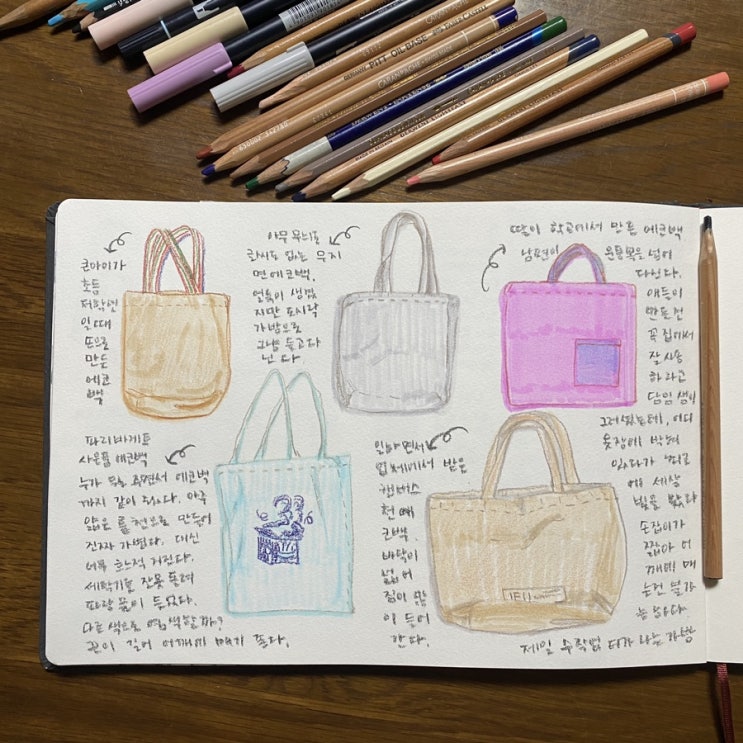 큰아이가
초등
저학년
일 때
손으로
만든
에코
백
아무 무늬도
글씨도 없는 무지
면 에코백.
얼룩이 생겼
지만 도시락
가방으로
그냥 들고다
닌다.
딸이 학교에서 만든 에코백
남편이 운동복을 넣어
다닌다.
애들이
만든건
꼭 집에서
잘 사용
하라고
담임
그러셨는데, 어디
옷장에 박혀
있다가
에 세상
빛을 봤다
손잡이가
짧아 어
깨에 매
는건 불가
능하다.
제일 수작업 티가 나는 가방
파리바게트
사은품 에코백
누가 주면서 에코백
까지 같이 줬다. 아주
얇은 천으로 만들어
진짜 가볍다. 대신
너무 흐느적 거린다.
세탁기를 잘못 돌려
파랑 물이 들었다.
다른 색으로 염색할까?
끈이 길어 어깨에 매기 좋다.
일하면서
업체에서 받은
캔버스
천 에
코백.
바닥이
넓어
짐이 많
이 들어
간다.
PITT OIL BASE